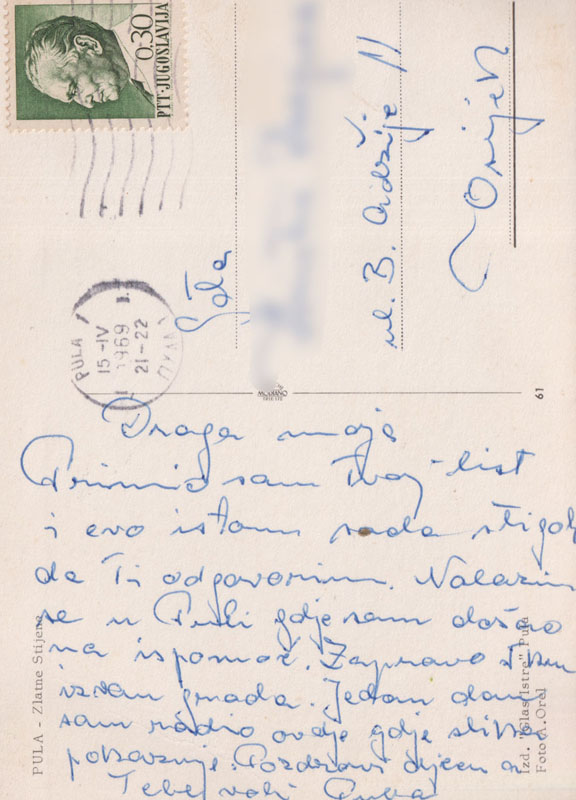 0.30
PTT-JUGOSLAVIJA
PULA
15-IV
1969
21-22
ul. B. Adžije 11
Osijek
61
Draga moja
Primio sam Tvoj list
i evo istom sada stigoh
da Ti odgovorim. Nalazim
se u Puli gdje sam došao
na ispomoć. Zapravo
izvan grada. Jedan dan
sam radio ovdje gdje slika
pokazuje. Pozdravi djecu a
Tebe voli
PULA - Zlatne Stijene
Izd. "Glas Istre" Pula
Foto A. Orel